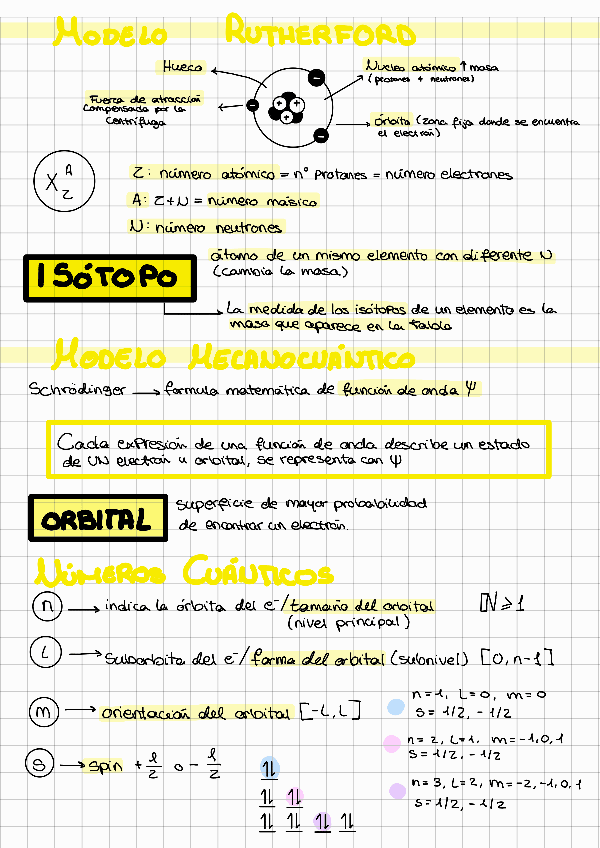 MODELO RUTHERFORD
Hueco
Núcleo atómico ↑ masa
(protones + neutrones)
Fuerza de atracción
compensada por la
centrífuga
órbita (zona fija donde se encuentra
el electrón)
X A Z
Z: número atómico = nº protones = número electrones
A: Z+N = número másico
N: número neutrones
ISÓTOPO
átomo de un mismo elemento con diferente N
(cambia la masa)
La medida de los isótopos de un elemento es la
masa que aparece en la tabla
MODELO MECANOCUÁNTICO
Schrödinger → formula matemática de función de onda Ψ
Cada expresión de una función de onda describe un estado
de UN electrón u orbital, se representa con Ψ
ORBITAL
superficie de mayor probabilidad
de encontrar un electrón.
NÚMEROS CUÁNTICOS
n → indica la órbita del e⁻/tamaño del orbital
(nivel principal)
N ≥ 1
L → Suborbita del e⁻/forma del orbital (subnivel) [0, n-1]
m → orientación del orbital [-L, L]
n=1, L=0, m=0
s = 1/2, -1/2
n=2, L=1, m=-1,0,1
s = 1/2, -1/2
s → spin + 1/2 o - 1/2
n=3, L=2, m=-2,-1,0,1
s=1/2, -1/2
⥮
⥮ ⥮
⥮ ⥮ ⥮ ⥮